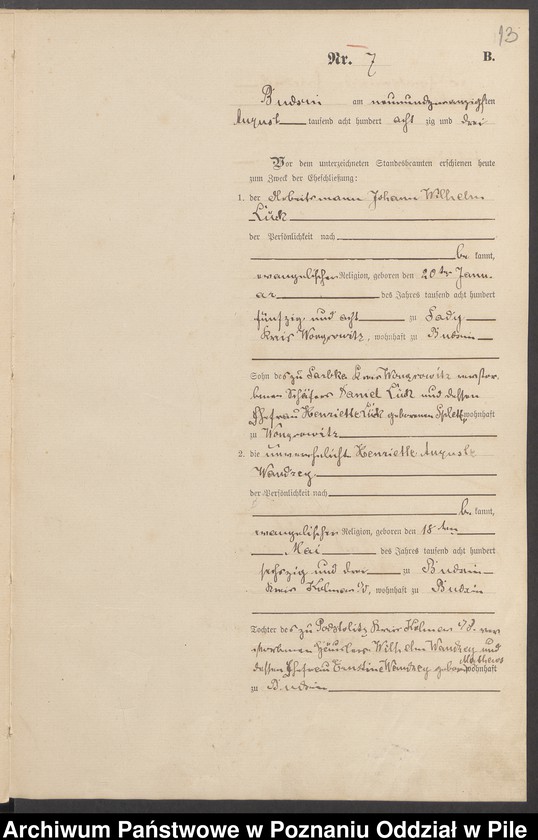 13
Nr. 7 B.
Budsin am neunundzwanzigsten
August tausend acht hundert acht zig und drei
Vor dem unterzeichneten Standesbeamten erschienen heute
zum Zweck der Eheschließung:
1. der Arbeitsmann Johann Wilhelm
Lück
der Persönlichkeit nach
be kannt,
evangelischer Religion, geboren den 20ten Janu-
ar des Jahres tausend acht hundert
fünfzig und acht zu
Kreis Wongrowitz, wohnhaft zu Budsin
Sohn des zu Kreis Wongrowitz verstor-
benen Schäfers Daniel Lück und dessen
Ehefrau Henriette Lück geborenen Splett wohnhaft
zu Wongrowitz
2. die unverehelicht Henriette Auguste
Wandrey
der Persönlichkeit nach
be kannt,
evangelischer Religion, geboren den 18ten
Mai des Jahres tausend acht hundert
sechszig und drei zu Budsin
Kreis Kolmar, wohnhaft zu Budsin
Tochter des zu Podstolitz Kreis Kolmar ver-
storbenen Häusler Wilhelm Wandrey und
dessen Ehefrau Ernstine Wandrey geboren wohnhaft
zu Budsin
Archiwum Państwowe w Poznaniu Oddział w Pile